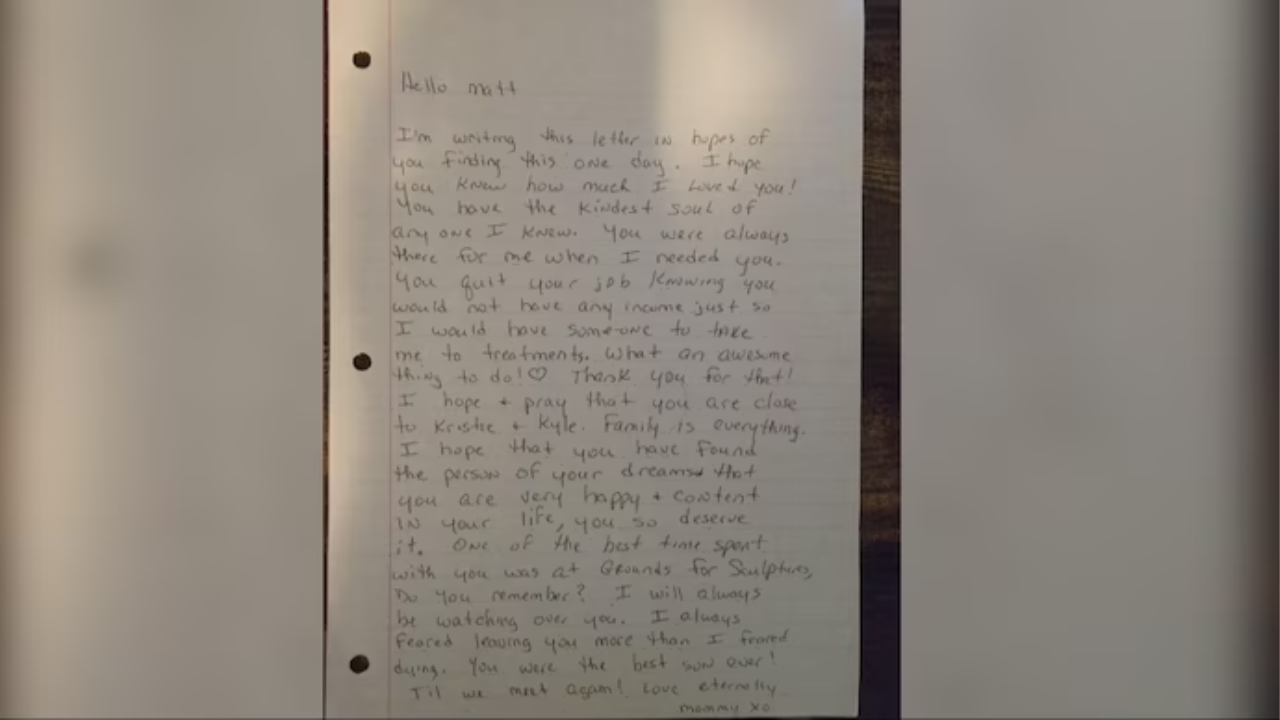 Hello matt
I'm writing this letter in hopes of
you finding this one day. I hope
you knew how much I loved you!
You have the kindest soul of
anyone I knew. You were always
there for me when I needed you.
You quit your job knowing you
would not have any income just so
I would have someone to take
me to treatments. What an awesome
thing to do! ♡ Thank you for that!
I hope + pray that you are close
to Kristie + Kyle. Family is everything.
I hope that you have found
the person of your dreams + that
you are very happy + content
in your life, you so deserve
it. One of the best time spent
with you was at Grounds for Sculptures,
Do you remember? I will always
be watching over you. I always
feared leaving you more than I feared
dying. You were the best son ever!
Til we meet again! Love eternally
mommy xo